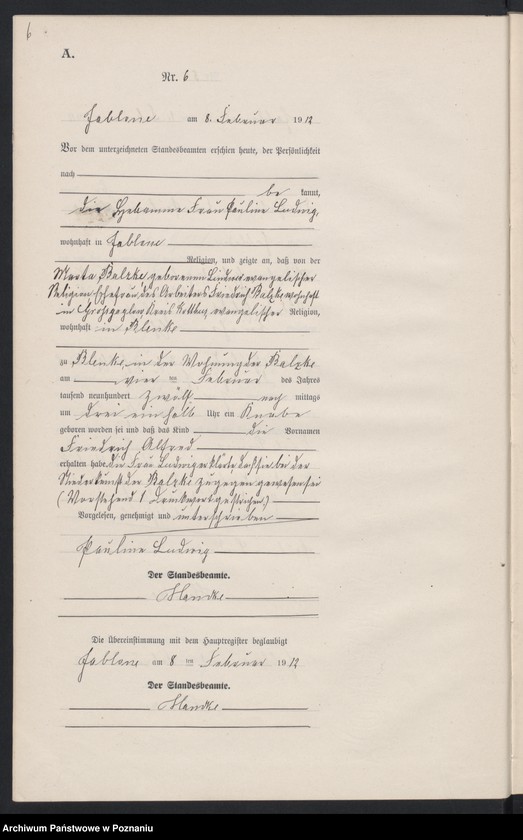 6
A.
Nr. 6
Jablone am 8. Februar 1912
Vor dem unterzeichneten Standesbeamten erschien heute, der Persönlichkeit
nach
be kannt,
die Hebamme Frau Pauline Ludwig,
wohnhaft in Jablone
Religion, und zeigte an, daß von der
Marta Balzke geborenen Linder evangelischer
Religion Ehefrau des Arbeiters Friedrich Balzke wohnhaft
in Kreis Kottbus, evangelischer Religion,
wohnhaft in Blenke
zu Blenke, in der Wohnung der Balzke
am vier ten Februar des Jahres
tausend neunhundert zwölf nach mittags
um drei einhalb Uhr ein Knabe
geboren worden sei und daß das Kind die Vornamen
Friedrich Alfred
erhalten habe. die Frau Ludwig erklärte daß sie bei der
Niederkunft der Balzke zugegen gewesen sei
(Vorstehend 1 Druckwort gestrichen)
Vorgelesen, genehmigt und unterschrieben
Pauline Ludwig
Der Standesbeamte.
Handke
Die Übereinstimmung mit dem Hauptregister beglaubigt
Jablone am 8 ten Februar 1912
Der Standesbeamte.
Handke
Archiwum Państwowe w Poznaniu